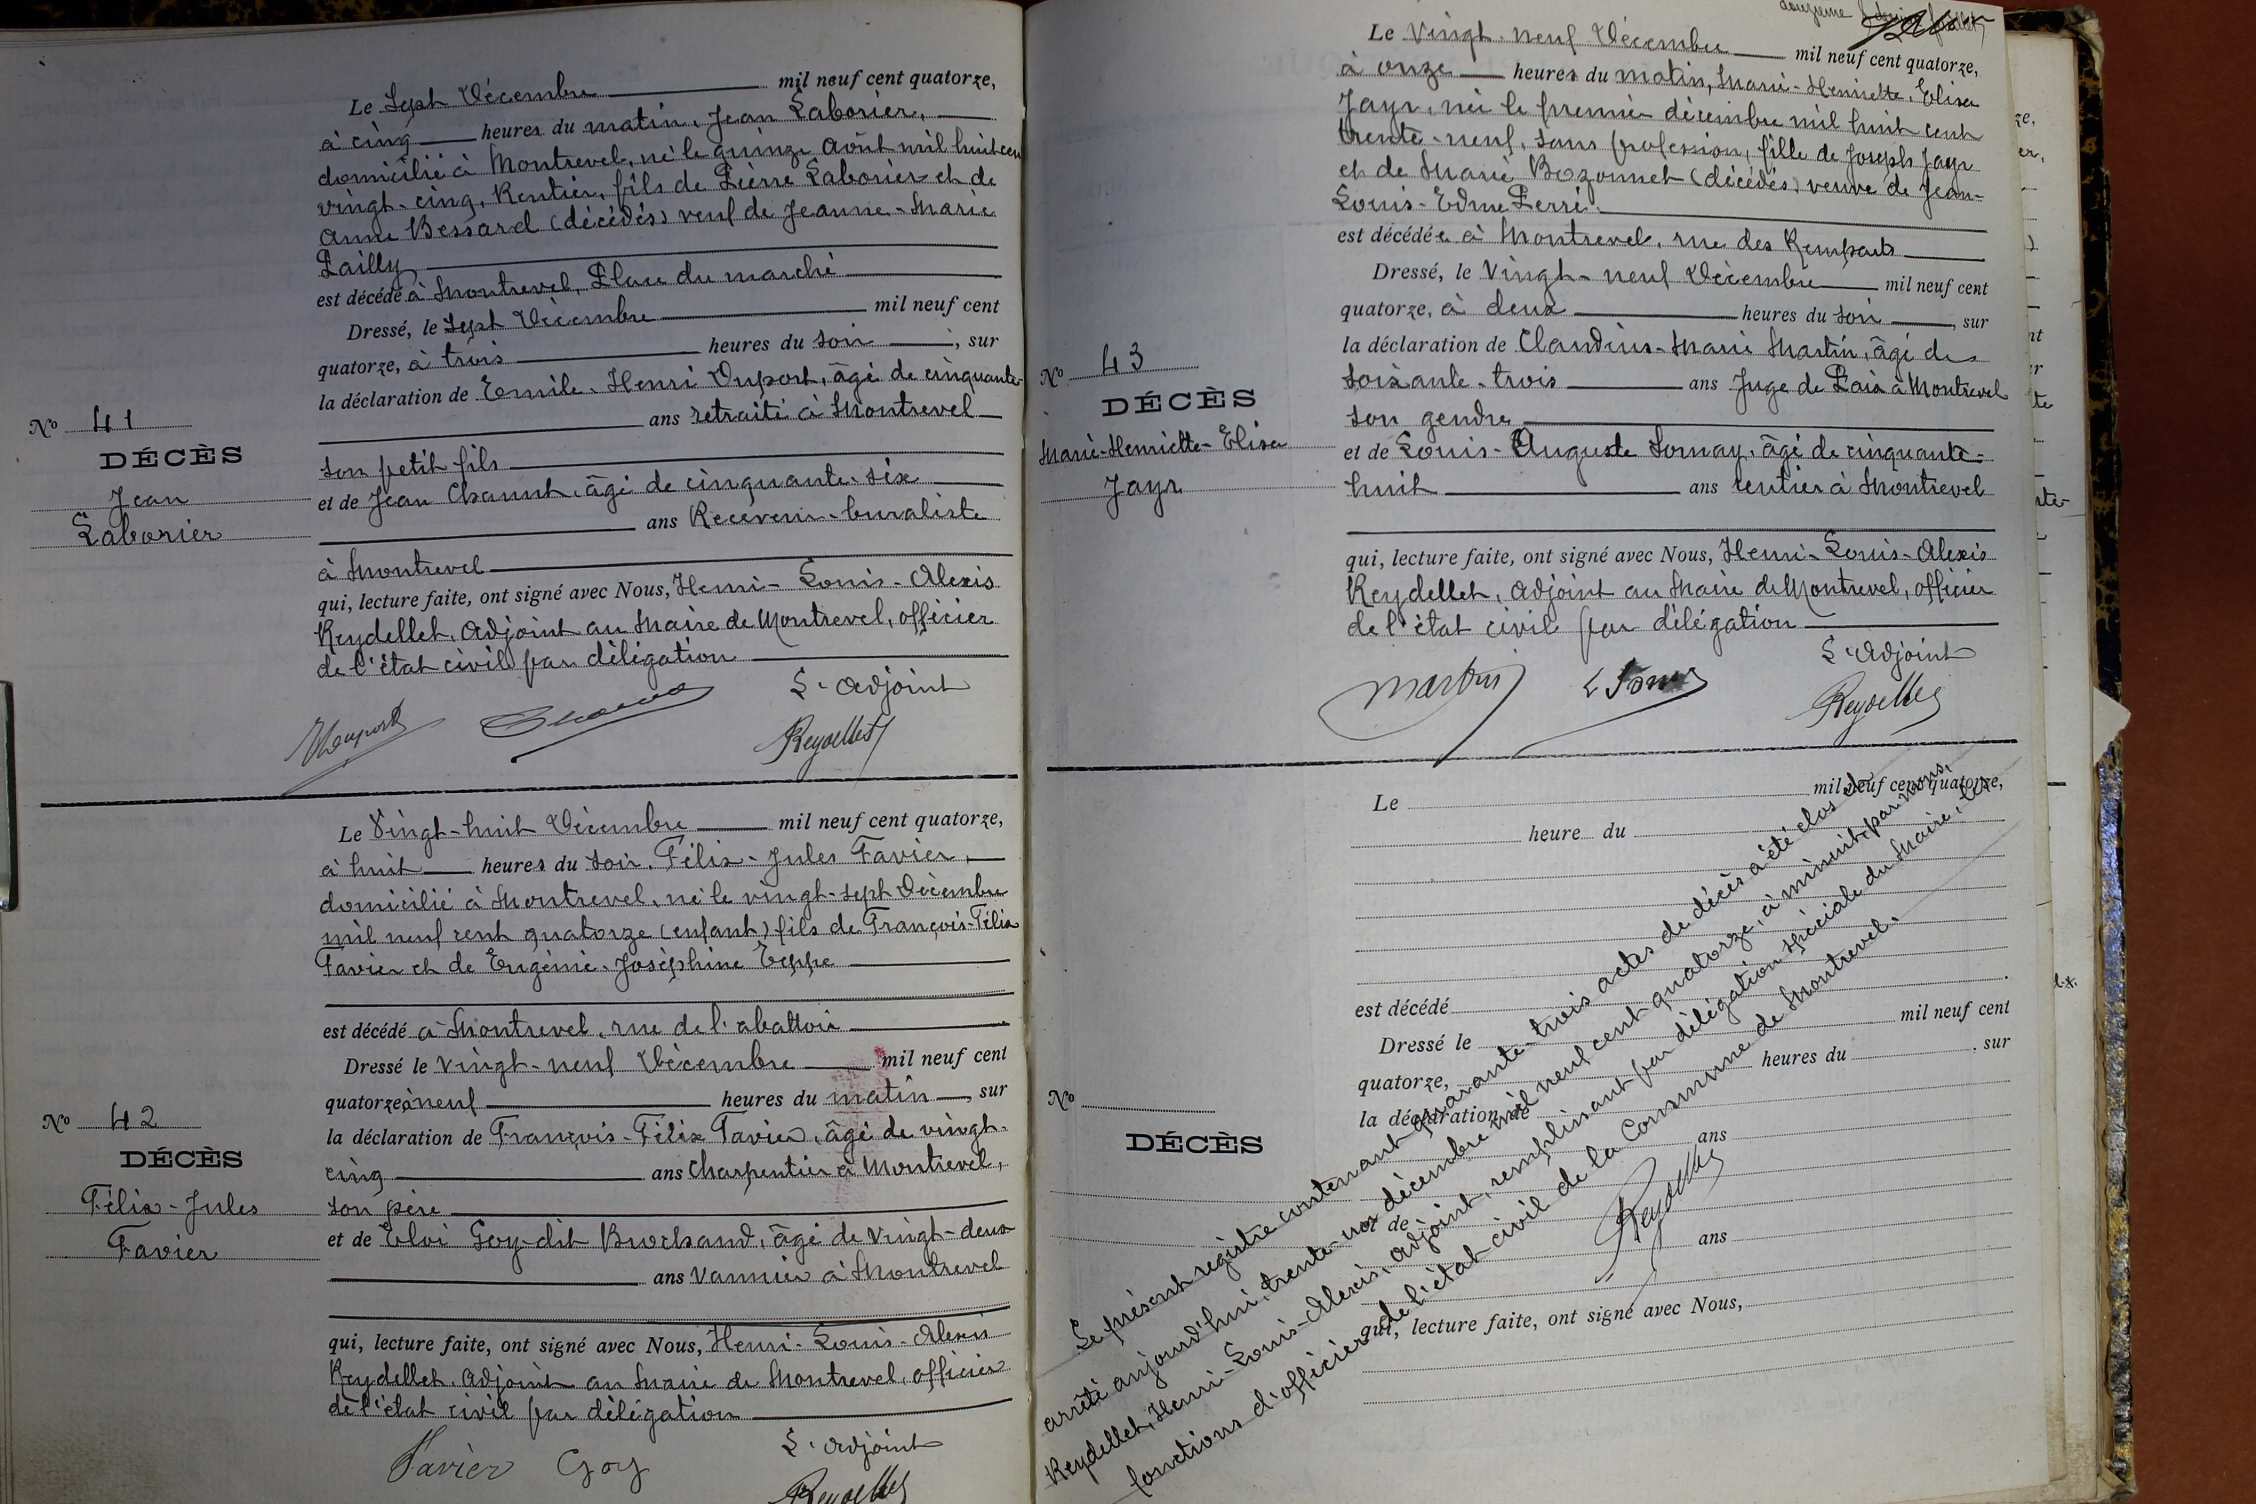 Le Sept Décembre mil neuf cent quatorze,
à cinq heures du matin, Jean Laborier,
domicilié à Montrevel, né le quinze Août mil huit cent
vingt-cinq, Rentier, fils de Pierre Laborier et de
Anne Bessard (décédés) veuf de Jeanne-Marie
Pailly
est décédé à Montrevel, Place du marché
Dressé, le Sept Décembre mil neuf cent
quatorze, à trois heures du soir, sur
la déclaration de Emile-Henri Duport, âgé de cinquante-
ans retraité à Montrevel
son petit fils
et de Jean Chanut, âgé de cinquante-six
ans Receveur-buraliste
à Montrevel
qui, lecture faite, ont signé avec Nous, Henri-Louis-Alexis
Reydellet, Adjoint au Maire de Montrevel, officier
de l'état civil par délégation
L'adjoint
Duport
Reydellet
No 41
DÉCÈS
Jean
Laborier
Le Vingt-huit Décembre mil neuf cent quatorze,
à huit heures du soir, Félix-Jules Favier,
domicilié à Montrevel, né le vingt-sept Décembre
mil neuf cent quatorze (enfant) fils de François-Félix
Favier et de Eugénie-Joséphine Teppe
est décédé à Montrevel, rue de l'abattoir
Dressé le vingt-neuf Décembre mil neuf cent
quatorze à neuf heures du matin, sur
la déclaration de François-Félix Favier, âgé de vingt-
cinq ans Charpentier à Montrevel,
son père
et de Eloi Goy-dit Brochand, âgé de vingt-deux
ans vannier à Montrevel
qui, lecture faite, ont signé avec Nous, Henri-Louis-Alexis
Reydellet, adjoint au Maire de Montrevel, officier
de l'état civil par délégation
L'adjoint
Favier Goy
Reydellet
No 42
DÉCÈS
Félix-Jules
Favier
douzième
Le Vingt-neuf Décembre mil neuf cent quatorze,
à onze heures du matin, Marie-Henriette-Elisa
Jayr, née le premier décembre mil huit cent
trente-neuf, sans profession, fille de Joseph Jayr
et de Marie Bozonnet (décédés) veuve de Jean-
Louis-Edme Perré.
est décédée à Montrevel, rue des Remparts
Dressé, le Vingt-neuf Décembre mil neuf cent
quatorze, à deux heures du soir, sur
la déclaration de Claudius-Marie Martin, âgé de
soixante-trois ans Juge de Paix à Montrevel
son gendre
et de Louis-Auguste Sornay, âgé de cinquante-
huit ans rentier à Montrevel
qui, lecture faite, ont signé avec Nous, Henri-Louis-Alexis
Reydellet, Adjoint au Maire de Montrevel, officier
de l'état civil par délégation
L'adjoint
Martin
Reydellet
No 43
DÉCÈS
Marie-Henriette-Elisa
Jayr
Le mil neuf cent quatorze,
heure du
est décédé
Dressé le mil neuf cent
quatorze, heures du , sur
la déclaration de
ans
et de
ans
qui, lecture faite, ont signé avec Nous,
No
DÉCÈS
Le présent registre contenant quarante-trois actes de décès a été clos et
arrêté aujourd'hui, trente-un décembre mil neuf cent quatorze, à minuit, par nous,
Reydellet, Henri-Louis-Alexis, adjoint, remplissant par délégation spéciale du Maire, les
fonctions d'officier de l'état civil de la Commune de Montrevel.
Reydellet